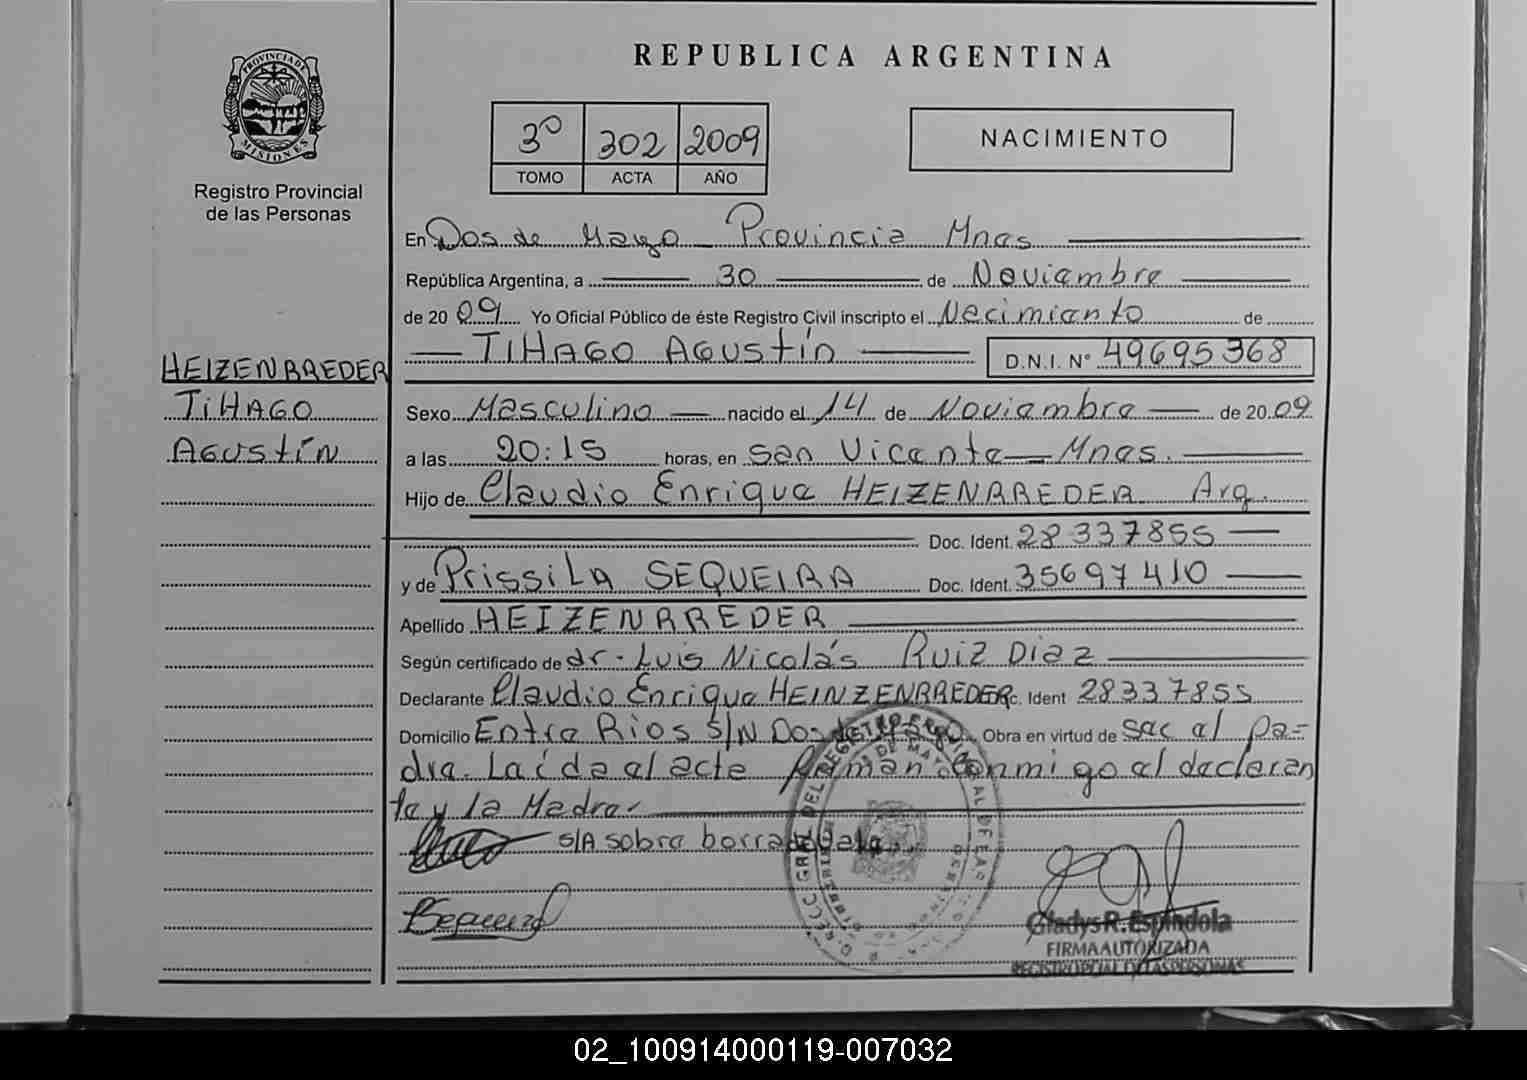 REPUBLICA ARGENTINA
PROVINCIA DE
MISIONES
Registro Provincial
de las Personas
3º 302 2009
TOMO ACTA AÑO
NACIMIENTO
En Dos de Mayo Provincia Mnes
República Argentina, a 30 de Noviembre
de 2009 Yo Oficial Público de éste Registro Civil inscripto el Necimiento de
TIHAGO AGUSTÍN D.N.I. Nº 49695368
HEIZENRREDER
TIHAGO
AGUSTÍN
Sexo Masculino nacido el 14 de Noviembre de 2009
a las 20:15 horas, en San Vicente Mnes.
Hijo de Claudio Enrique HEIZENRREDER Arg.
Doc. Ident. 28337855
y de PrissiLA SEQUEIRA Doc. Ident. 35697410
Apellido HEIZENRREDER
Según certificado de dr. Luis Nicolás Ruiz Diaz
Declarante Claudio Enrique HEINZENRREDER c. Ident 28337855
Domicilio Entre Rios S/N Dos de Mayo. Obra en virtud de sac al pa=
dre. Leída el acte firman conmigo el declaran
te y la Madre.
S/A sobre borrado vale.
Sequeira
Gladys R. Espindola
FIRMA AUTORIZADA
REGISTRO PCIAL DE LAS PERSONAS
02_100914000119-007032